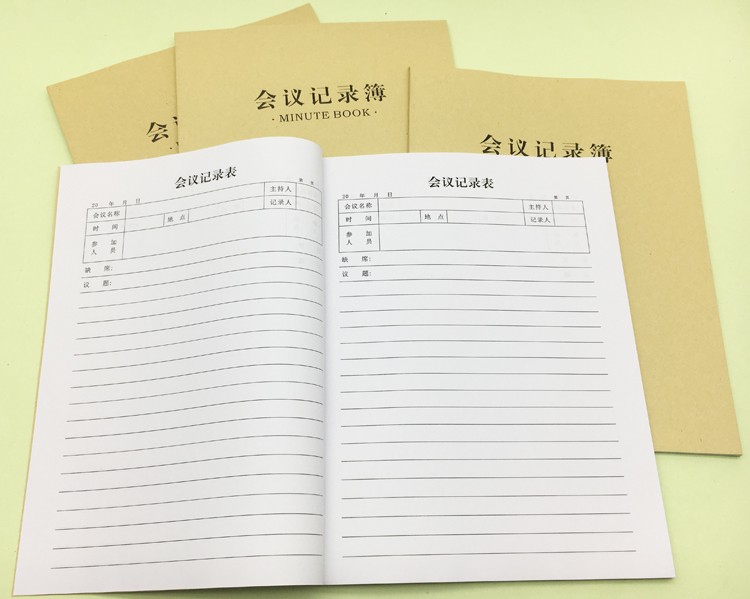 会议记录簿
· MINUTE BOOK ·
会议
会议记录簿
会议记录表
第 页
20 年 月 日
会议名称 主持人
时 间 地 点 记录人
参 加
人 员
缺 席:
议 题:
会议记录表
第 页
20 年 月 日
会议名称 主持人
时 间 地 点 记录人
参 加
人 员
缺 席:
议 题: